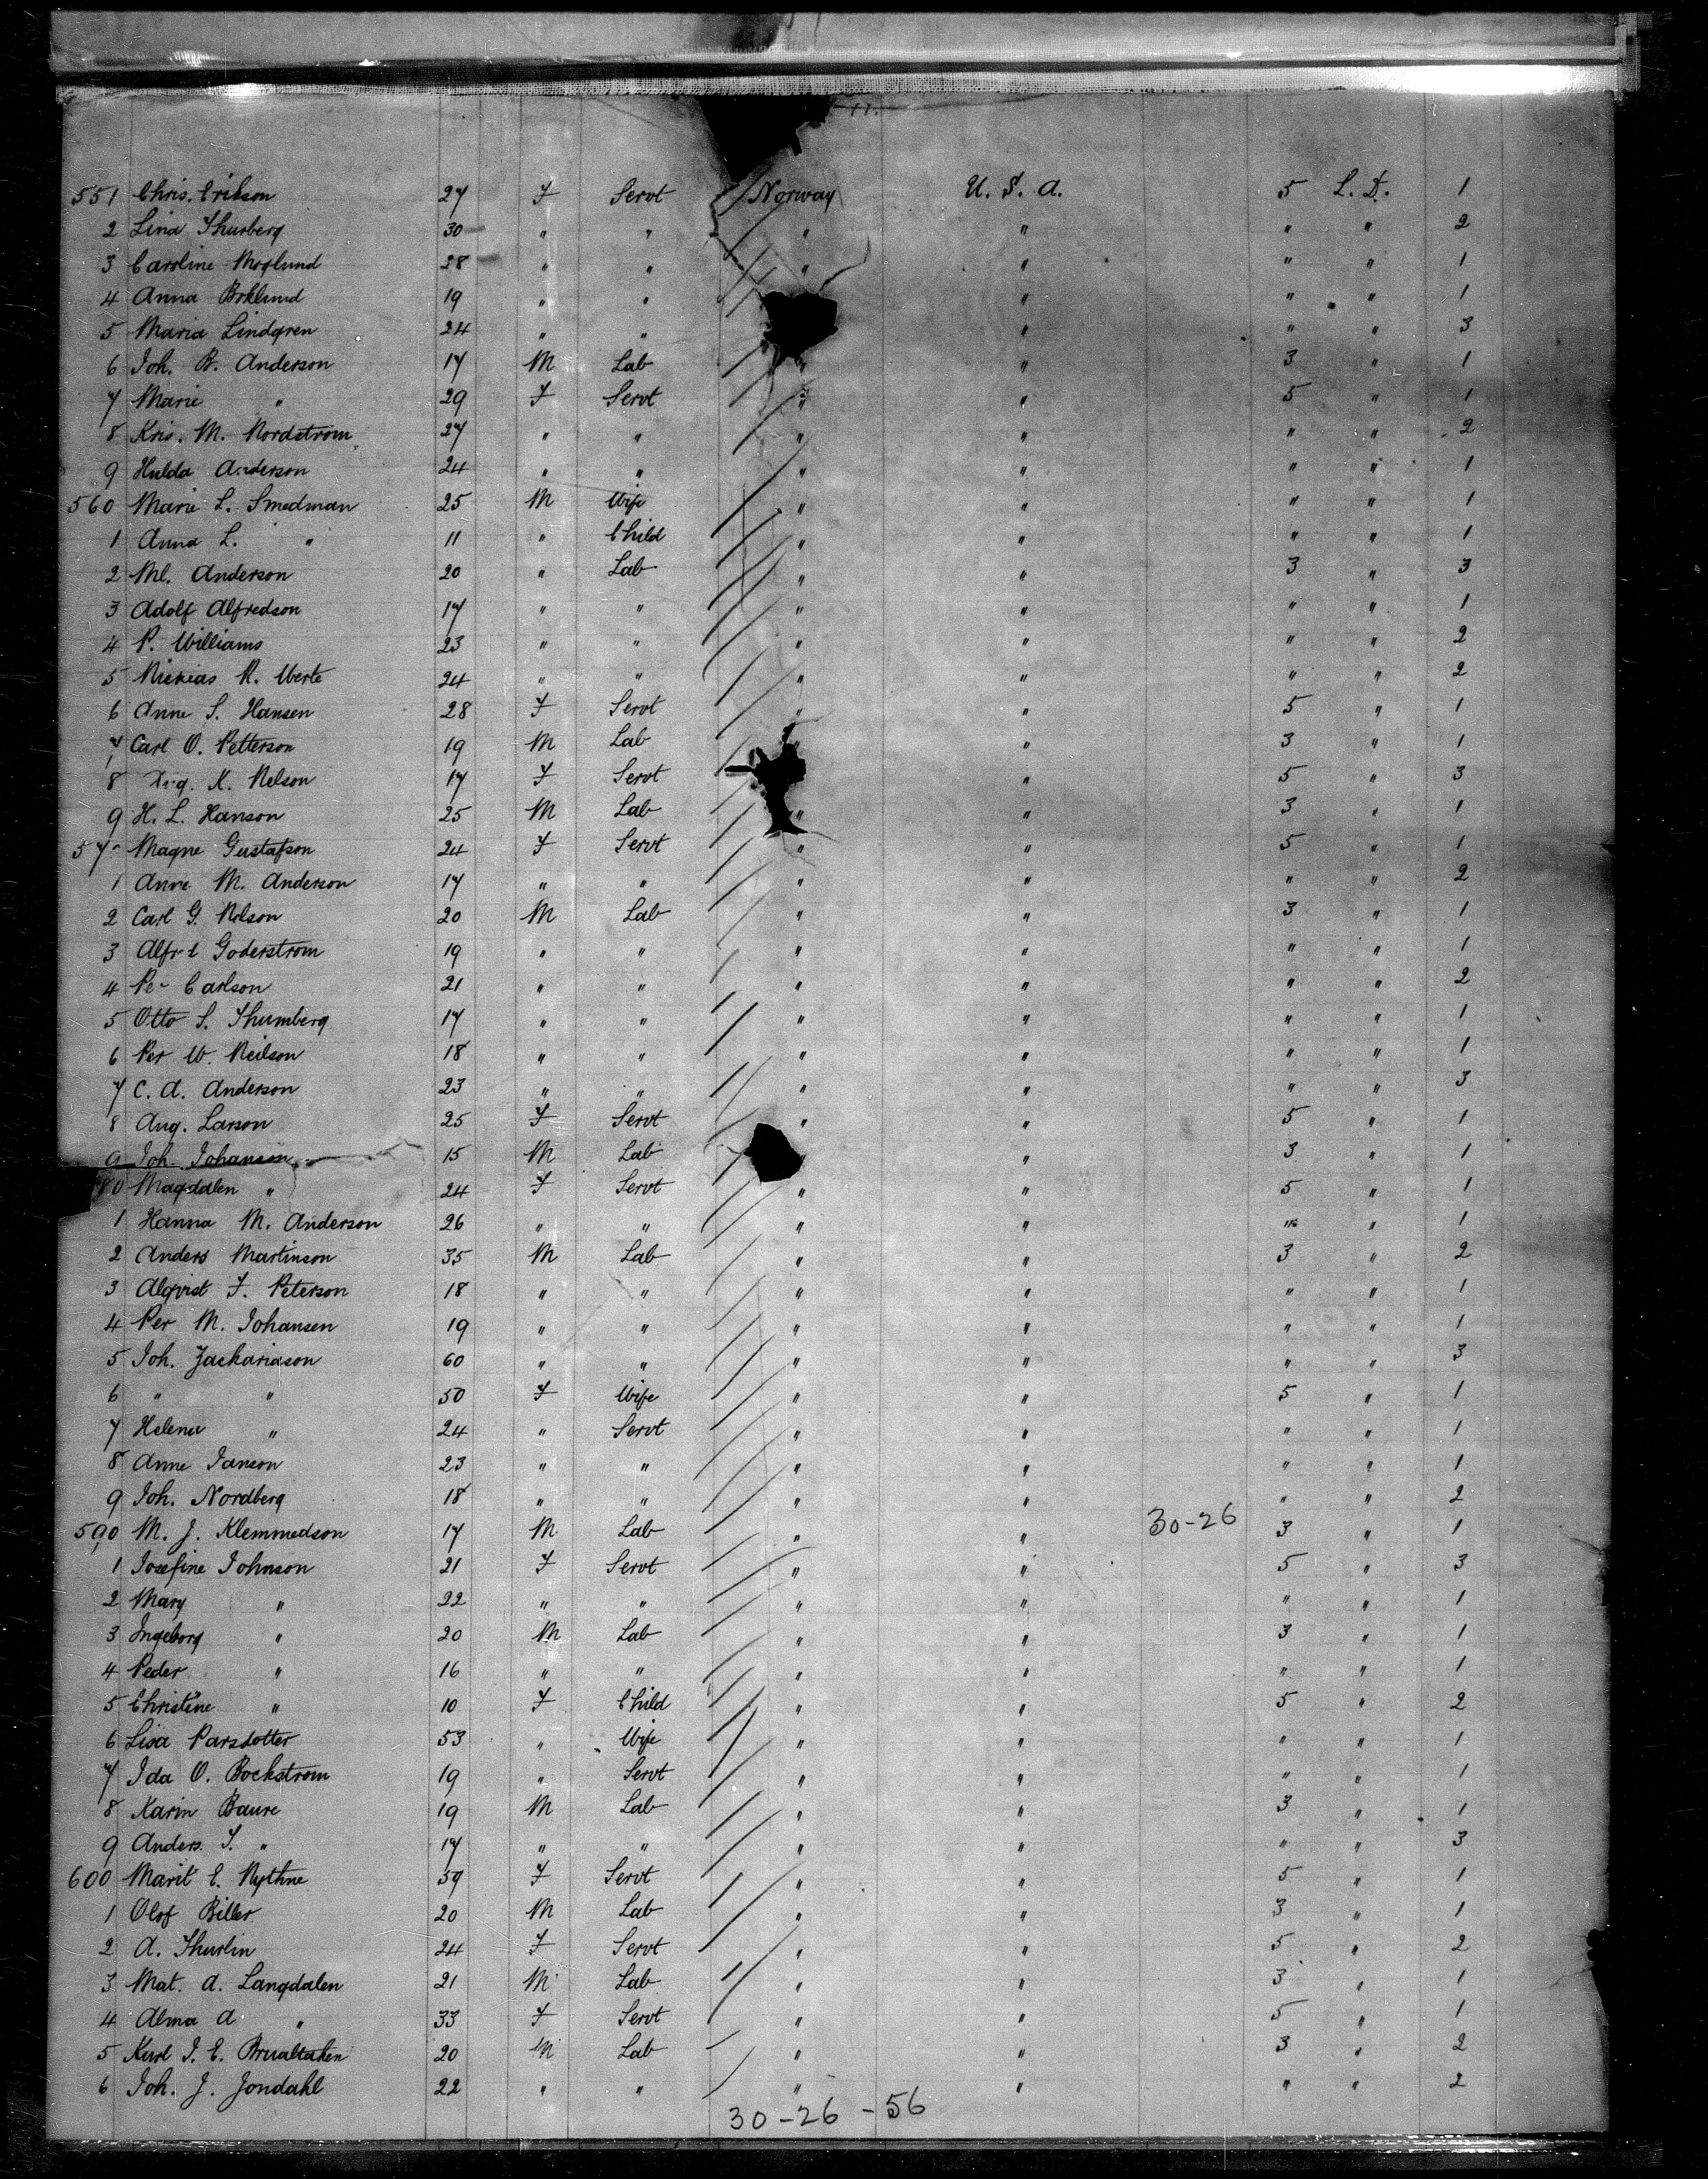 11.
551 Chris. Erikson 27 F Servt Norway U. S. A. 5 L. D. 1
2 Lina Thurberg 30 " " " " " " 2
3 Caroline Moglund 28 " " " " " " 1
4 Anna Boklund 19 " " " " " 1
5 Maria Lindgren 24 " " " " " 3
6 Joh. B. Anderson 17 M Lab " " 3 " 1
7 Marie " 29 F Servt " " 5 " 1
8 Kris. M. Nordstrom 27 " " " " " " 2
9 Hulda Anderson 24 " " " " " " 1
560 Marie L. Smedman 25 M Wife " " " " 1
1 Anna L. " 11 " Child " " " " 1
2 Ml. Anderson 20 " Lab " " 3 " 3
3 Adolf Alfredson 17 " " " " " " 1
4 P. Williams 23 " " " " " " 2
5 R. Werte 24 " " " " " " 2
6 Anne S. Hansen 28 F Servt " " 5 " 1
7 Carl O. Petterson 19 M Lab " 3 " 1
8 K. Nelson 17 F Servt " 5 " 3
9 H. L. Hanson 25 M Lab " " 3 " 1
57 Magne Gustafson 24 F Servt " " 5 " 1
1 Anne M. Anderson 17 " " " " " " 2
2 Carl G. Nelson 20 M Lab " " 3 " 1
3 Goderstrom 19 " " " " " " 1
4 Carlson 21 " " " " " " 2
5 Otto S. Thumberg 17 " " " " " " 1
6 Per W. Neilson 18 " " " " " " 1
7 C. A. Anderson 23 " " " " " " 3
8 Aug. Larson 25 F Servt " " 5 " 1
9 Joh. Johansen 15 M Lab " " 3 " 1
80 Magdalen " 24 F Servt " " 5 " 1
1 Hanna M. Anderson 26 " " " " " " 1
2 Anders Martinson 35 M Lab " " 3 " 2
3 Alqvist F. Peterson 18 " " " " " " 1
4 Per M. Johansen 19 " " " " " " 1
5 Joh. Zackariason 60 " " " " " " 3
6 " " 50 F Wife " " 5 " 1
7 Helena " 24 " Servt " " " " 1
8 Anne Janson 23 " " " " " " 1
9 Joh. Nordberg 18 " " " " " " 2
590 M. J. Klemmedson 17 M Lab " " 30-26 3 " 1
1 Josefine Johnson 21 F Servt " " 5 " 3
2 Mary " 22 " " " " " " 1
3 Ingeborg " 20 M Lab " " 3 " 1
4 Peder " 16 " " " " " " 1
5 Christine " 10 F Child " " 5 " 2
6 Lisa Parsdotter 53 " Wife " " " " 1
7 Ida O. Bockstrom 19 " Servt " " " " 1
8 Karin Baure 19 M Lab " " 3 " 1
9 Anders. S. " 17 " " " " " " 3
600 Marit E. Nythne 59 F Servt " " 5 " 1
1 Olof Biller 20 M Lab " " 3 " 1
2 A. Thurlin 24 F Servt " " 5 " 2
3 Mat. A. Langdalen 21 M Lab " " 3 " 1
4 Alma A " 33 F Servt " " 5 " 1
5 J. E. 20 M Lab " " 3 " 2
6 Joh. J. Jondahl 22 " " " " " " 2
30-26-56